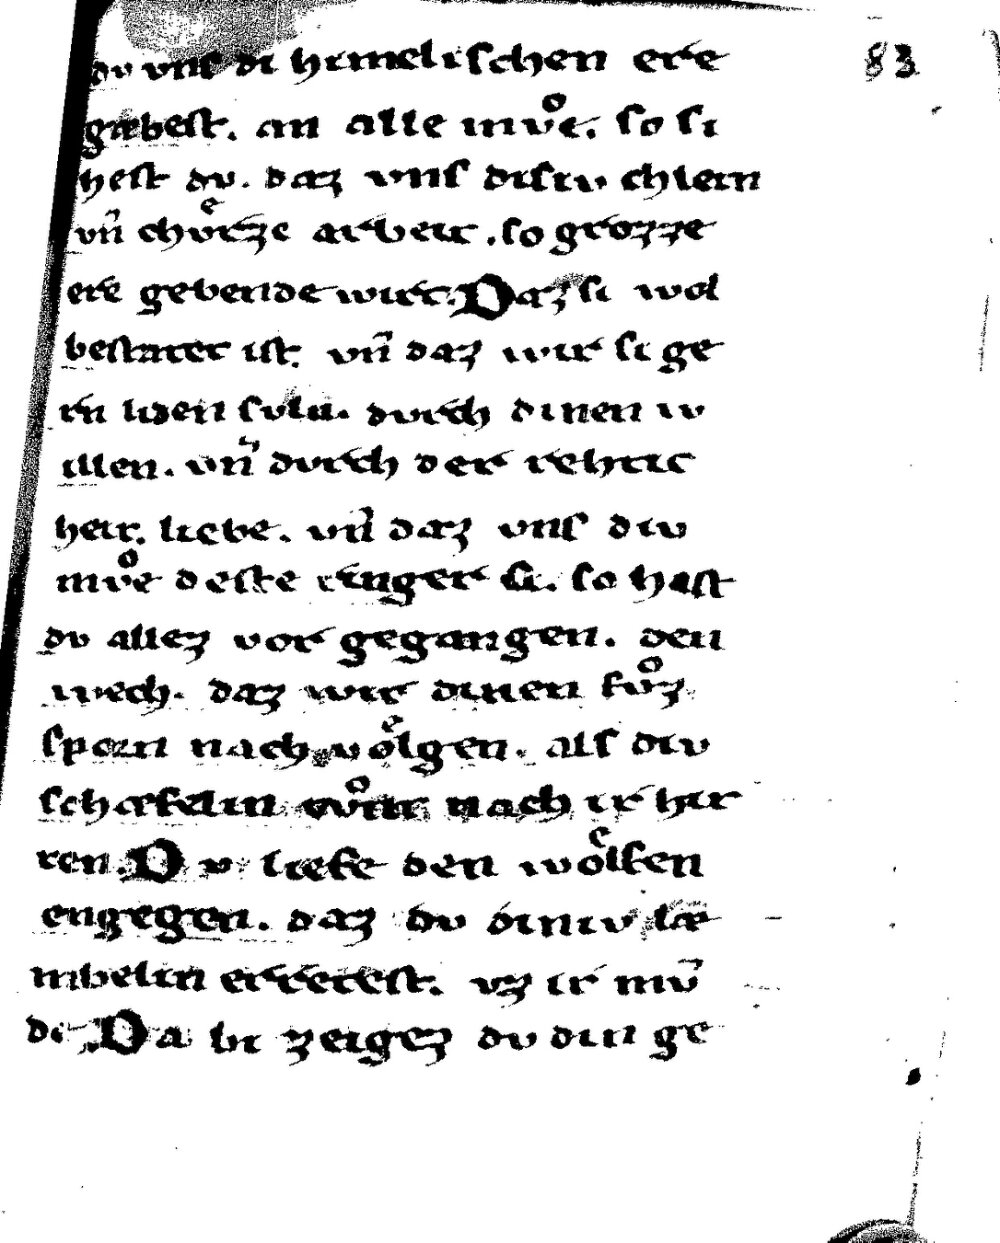 du vns di himelischen ere 83
gæbest. an alle mvͦt. so si
hest du. daz vns disiv chlein
vn̄ chvͤrze arbeit. so grozze
ere gebende wirt. Daz si wol
bestatet ist. vn̄ daz wir si ge
rn liden suln. durch dinen w
illen. vn̄ durch der rehtic
heit. liebe. vn̄ daz vns div
mvͦe deste ringer si. so hast
du allez vor gegangen. den
wech. daz wir dinen fvͦz
sporn nach voͤlgen. als div
schæfelin nach ir hir
ten. Dv liefe den woͤlfen
engegen. daz du diniv læ
mbelin erretest. vz ir mv̄
de. Da bi zeigez du din ge